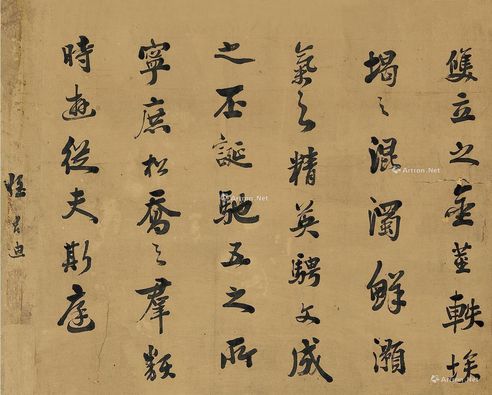 雙立之金莖軼埃
堨之混濁鮮灝
氣之精英騁文成
之丕誕馳五之所
寧庶松喬之羣類
時遊從夫斯庭
Artron.Net
Artron.Net
Artron.Net